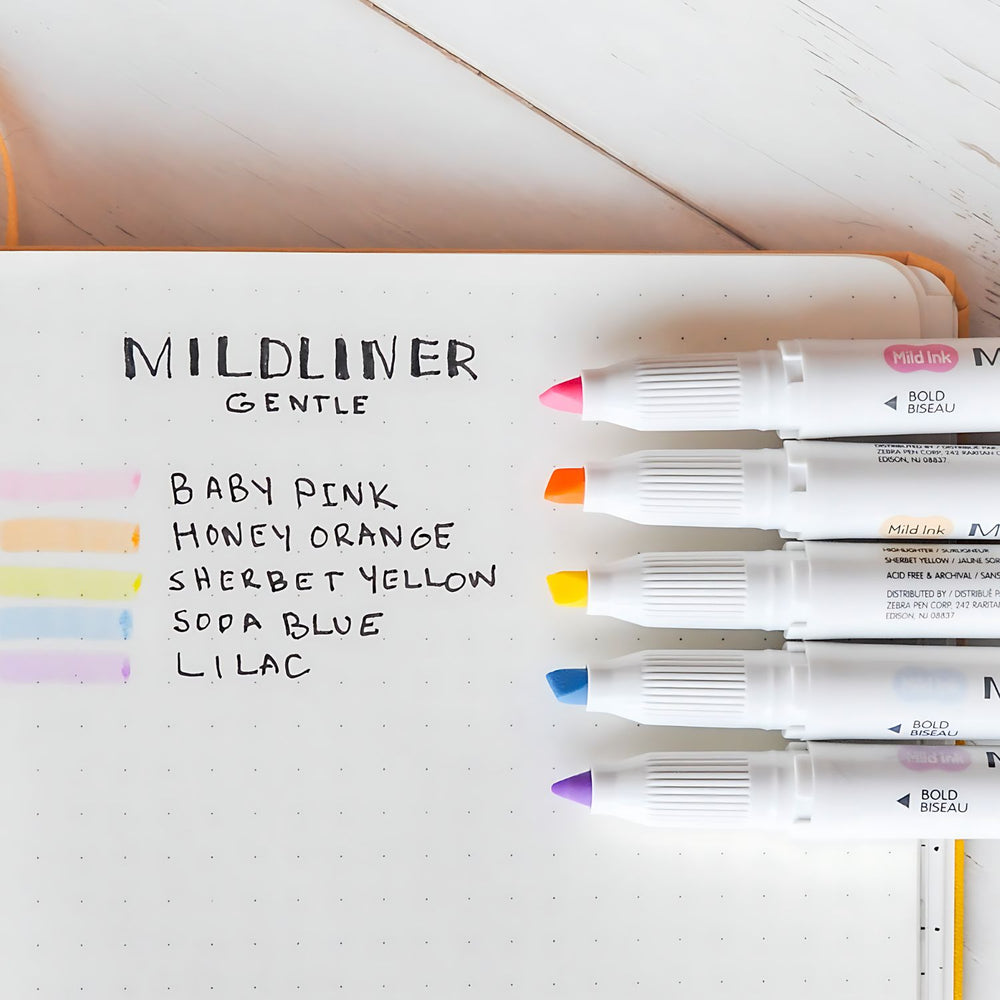 MILDLINER
GENTLE
BABY PINK
HONEY ORANGE
SHERBET YELLOW
SODA BLUE
LILAC
Mild Ink
BOLD
BISEAU
ZEBRA PEN CORP. 242 RARITAN
EDISON, NJ 08837
Mild Ink
HIGHLIGHTER / SURLIGNEUR
SHERBET YELLOW / JAUNE
ACID FREE & ARCHIVAL / SANS
DISTRIBUTED BY / DISTRIBUÉ
ZEBRA PEN CORP. 242 RARITAN
EDISON, NJ 08837
BOLD
BISEAU
BOLD
BISEAU